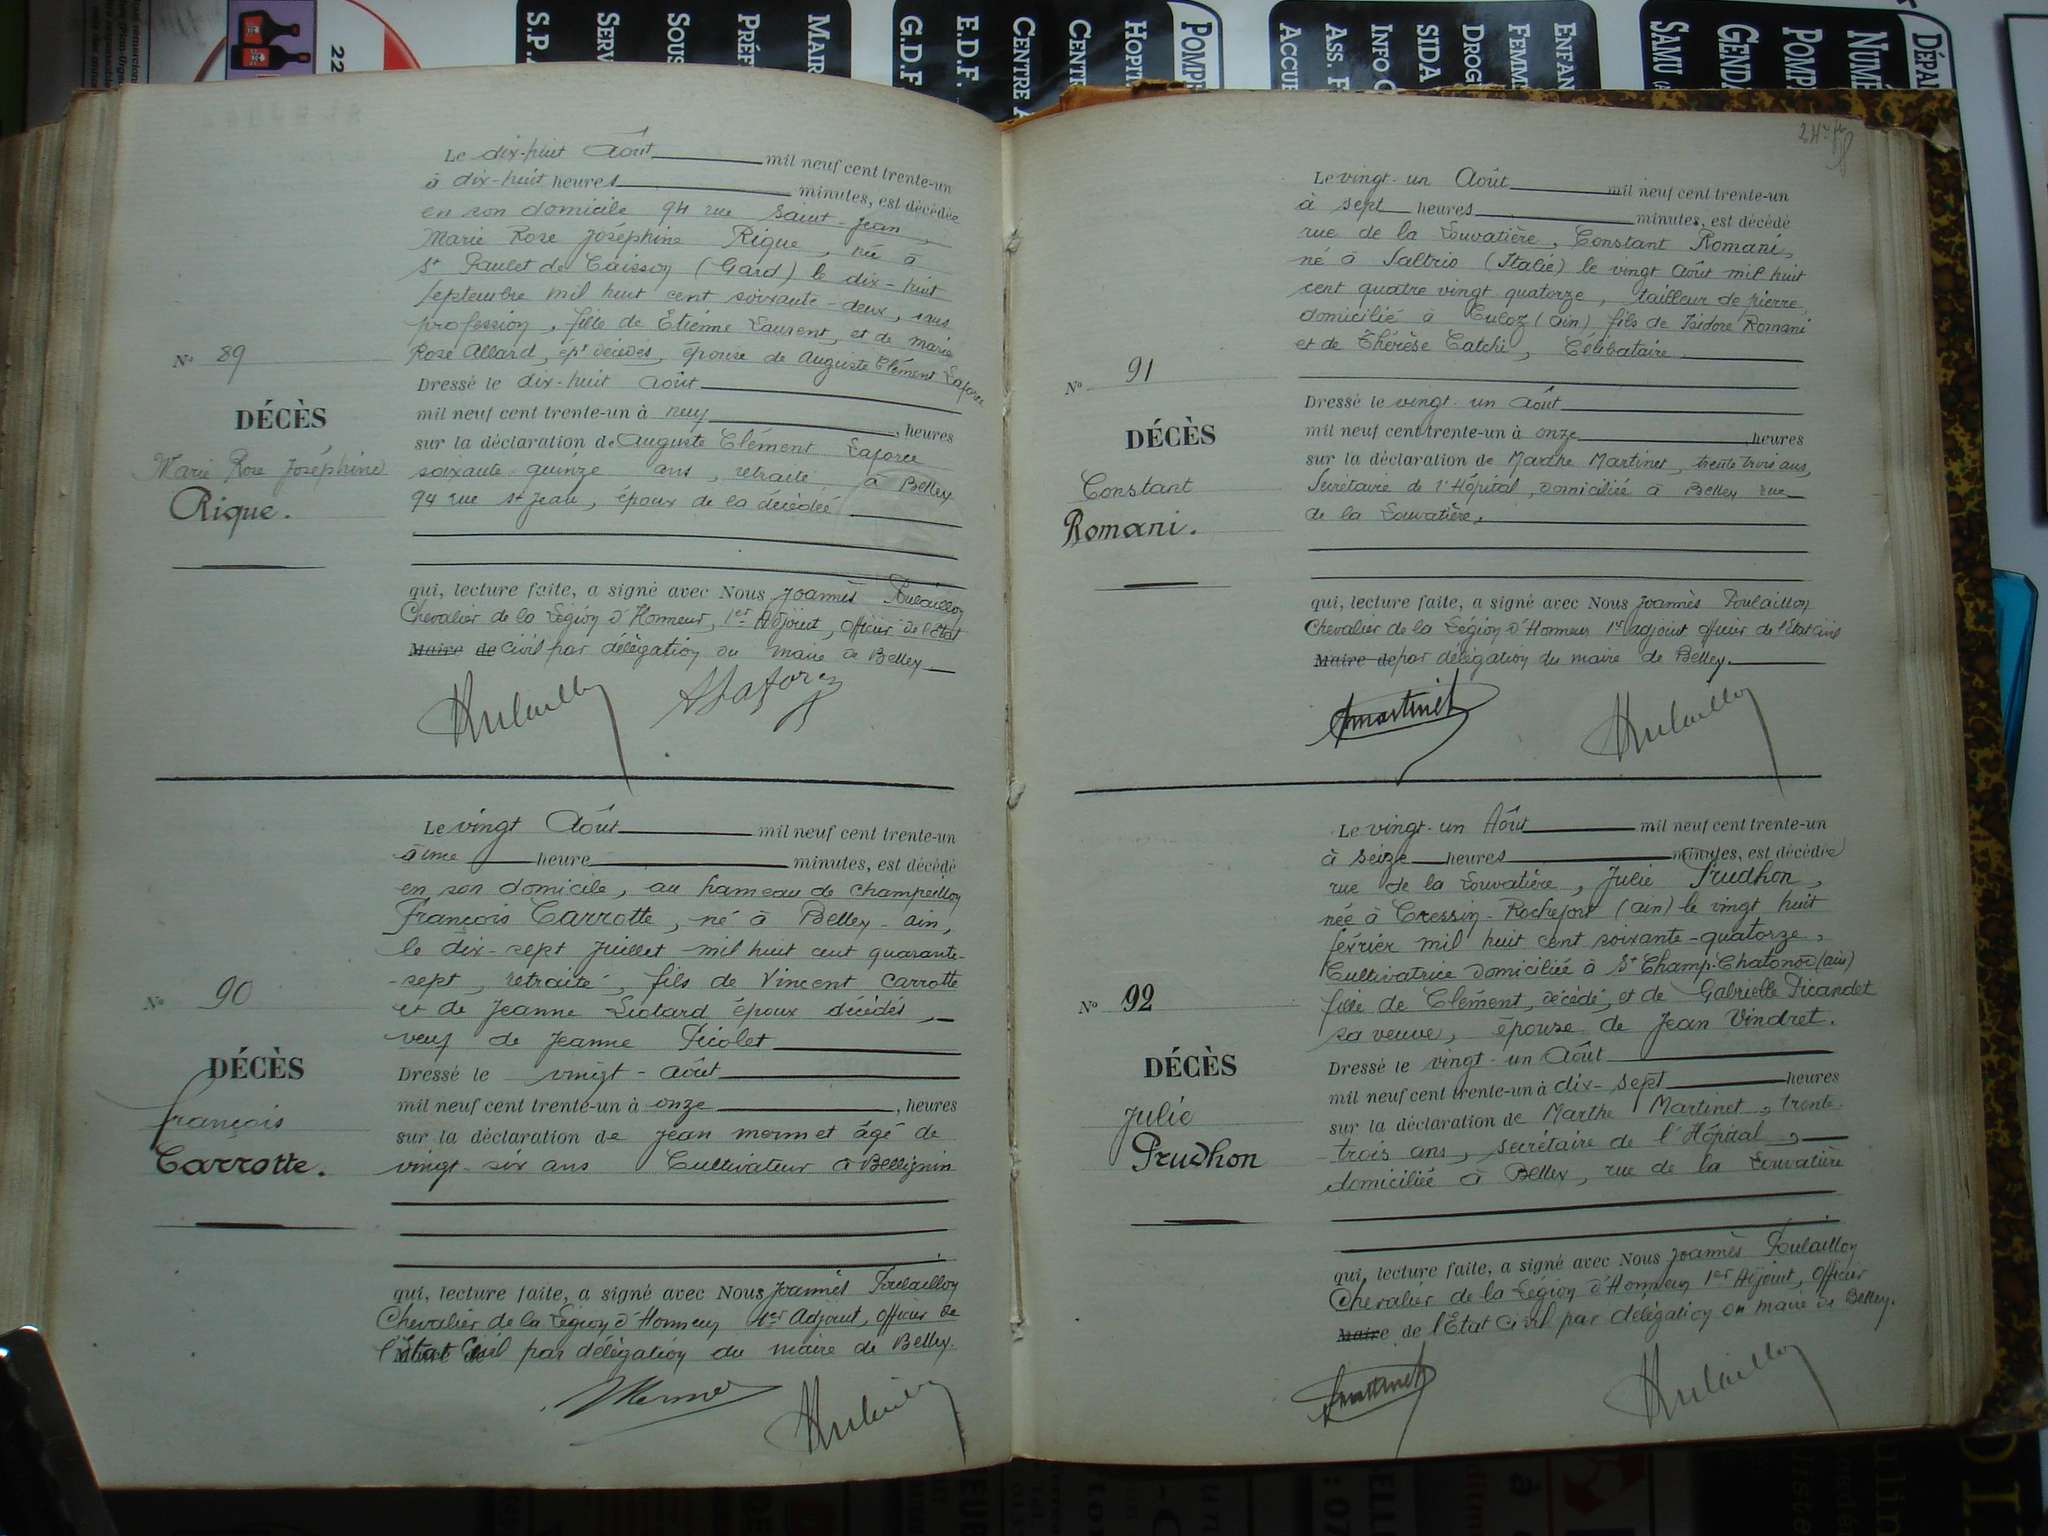 22
S.P.A
SERV
SOUS
PRÉF
MAIR
G.D.F
E.D.F.
CENTRE A
CENT
HOPIT
POMPE
ACCUE
ASS. F
INFO
SIDA
DROG
FEMM
ENFAN
SAMU
GENDA
POMP
NUMÉ
DÉPA
Le dix-huit Août mil neuf cent trente-un
à dix-huit heures minutes, est décédée
en son domicile 94 rue Saint-Jean,
Marie Rose Joséphine Rique, née à
St Paulet de Caisson (Gard) le dix-huit
septembre mil huit cent soixante-deux, sans
profession, fille de Étienne Laurent, et de Marie
Rose Allard, épx décédés, épouse de Auguste Clément Laforce
N° 89
DÉCÈS
Marie Rose Joséphine
Rique.
Dressé le dix-huit août
mil neuf cent trente-un à neuf, heures
sur la déclaration de Auguste Clément Laforce
soixante quinze ans, retraité, à Belley
94 rue St Jean, époux de la décédée
qui, lecture faite, a signé avec Nous Joannès Poulaillon
Chevalier de la Légion d'Honneur, 1er Adjoint, officier de l'Etat
Maire de Civil par délégation du maire de Belley
Le vingt Août mil neuf cent trente-un
à une heure minutes, est décédé
en son domicile, au hameau de Champeillon
François Carrotte, né à Belley-ain,
le dix-sept Juillet mil huit cent quarante-
-sept, retraité, fils de Vincent Carrotte
et de Jeanne Liotard époux décédés,
veuf de Jeanne Picolet
N° 90
DÉCÈS
François
Carrotte.
Dressé le vingt-août
mil neuf cent trente-un à onze, heures
sur la déclaration de Jean Mermet âgé de
vingt-six ans Cultivateur à Bellignin
qui, lecture faite, a signé avec Nous Joannès Poulaillon
Chevalier de la Légion d'Honneur 1er Adjoint, officier de
l'Etat Civil par délégation du maire de Belley.
Le vingt-un Août mil neuf cent trente-un
à sept heures minutes, est décédé
rue de la Louvatière, Constant Romani,
né à Saltrio (Italie) le vingt Août mil huit
cent quatre vingt quatorze, tailleur de pierre
domicilié à Culoz (ain) fils de Isidore Romani
et de Thérèse Catchi, Célibataire
N° 91
DÉCÈS
Constant
Romani.
Dressé le vingt-un Août
mil neuf cent trente-un à onze, heures
sur la déclaration de Marthe Martinet, trente trois ans,
Secrétaire de l'Hôpital, domiciliée à Belley rue
de la Louvatière,
qui, lecture faite, a signé avec Nous Joannès Poulaillon
Chevalier de la Légion d'Honneur 1er adjoint officier de l'Etat Civil
Maire de par délégation du maire de Belley.
Le vingt-un Août mil neuf cent trente-un
à seize heures minutes, est décédée
rue de la Louvatière, Julie Prudhon,
née à Cressin-Rochefort (ain) le vingt huit
février mil huit cent soixante-quatorze,
Cultivatrice domiciliée à St Champ-Chatonod (ain)
fille de Clément, décédé, et de Gabrielle Picandet
sa veuve, épouse de Jean Vindret.
N° 92
DÉCÈS
Julie
Prudhon
Dressé le vingt-un Août
mil neuf cent trente-un à dix-sept heures
sur la déclaration de Marthe Martinet, trente-
trois ans, secrétaire de l'Hôpital,
domiciliée à Belley, rue de la Louvatière
qui, lecture faite, a signé avec Nous Joannès Poulaillon
Chevalier de la Légion d'Honneur 1er Adjoint, Officier
Maire de l'Etat Civil par délégation du maire de Belley.